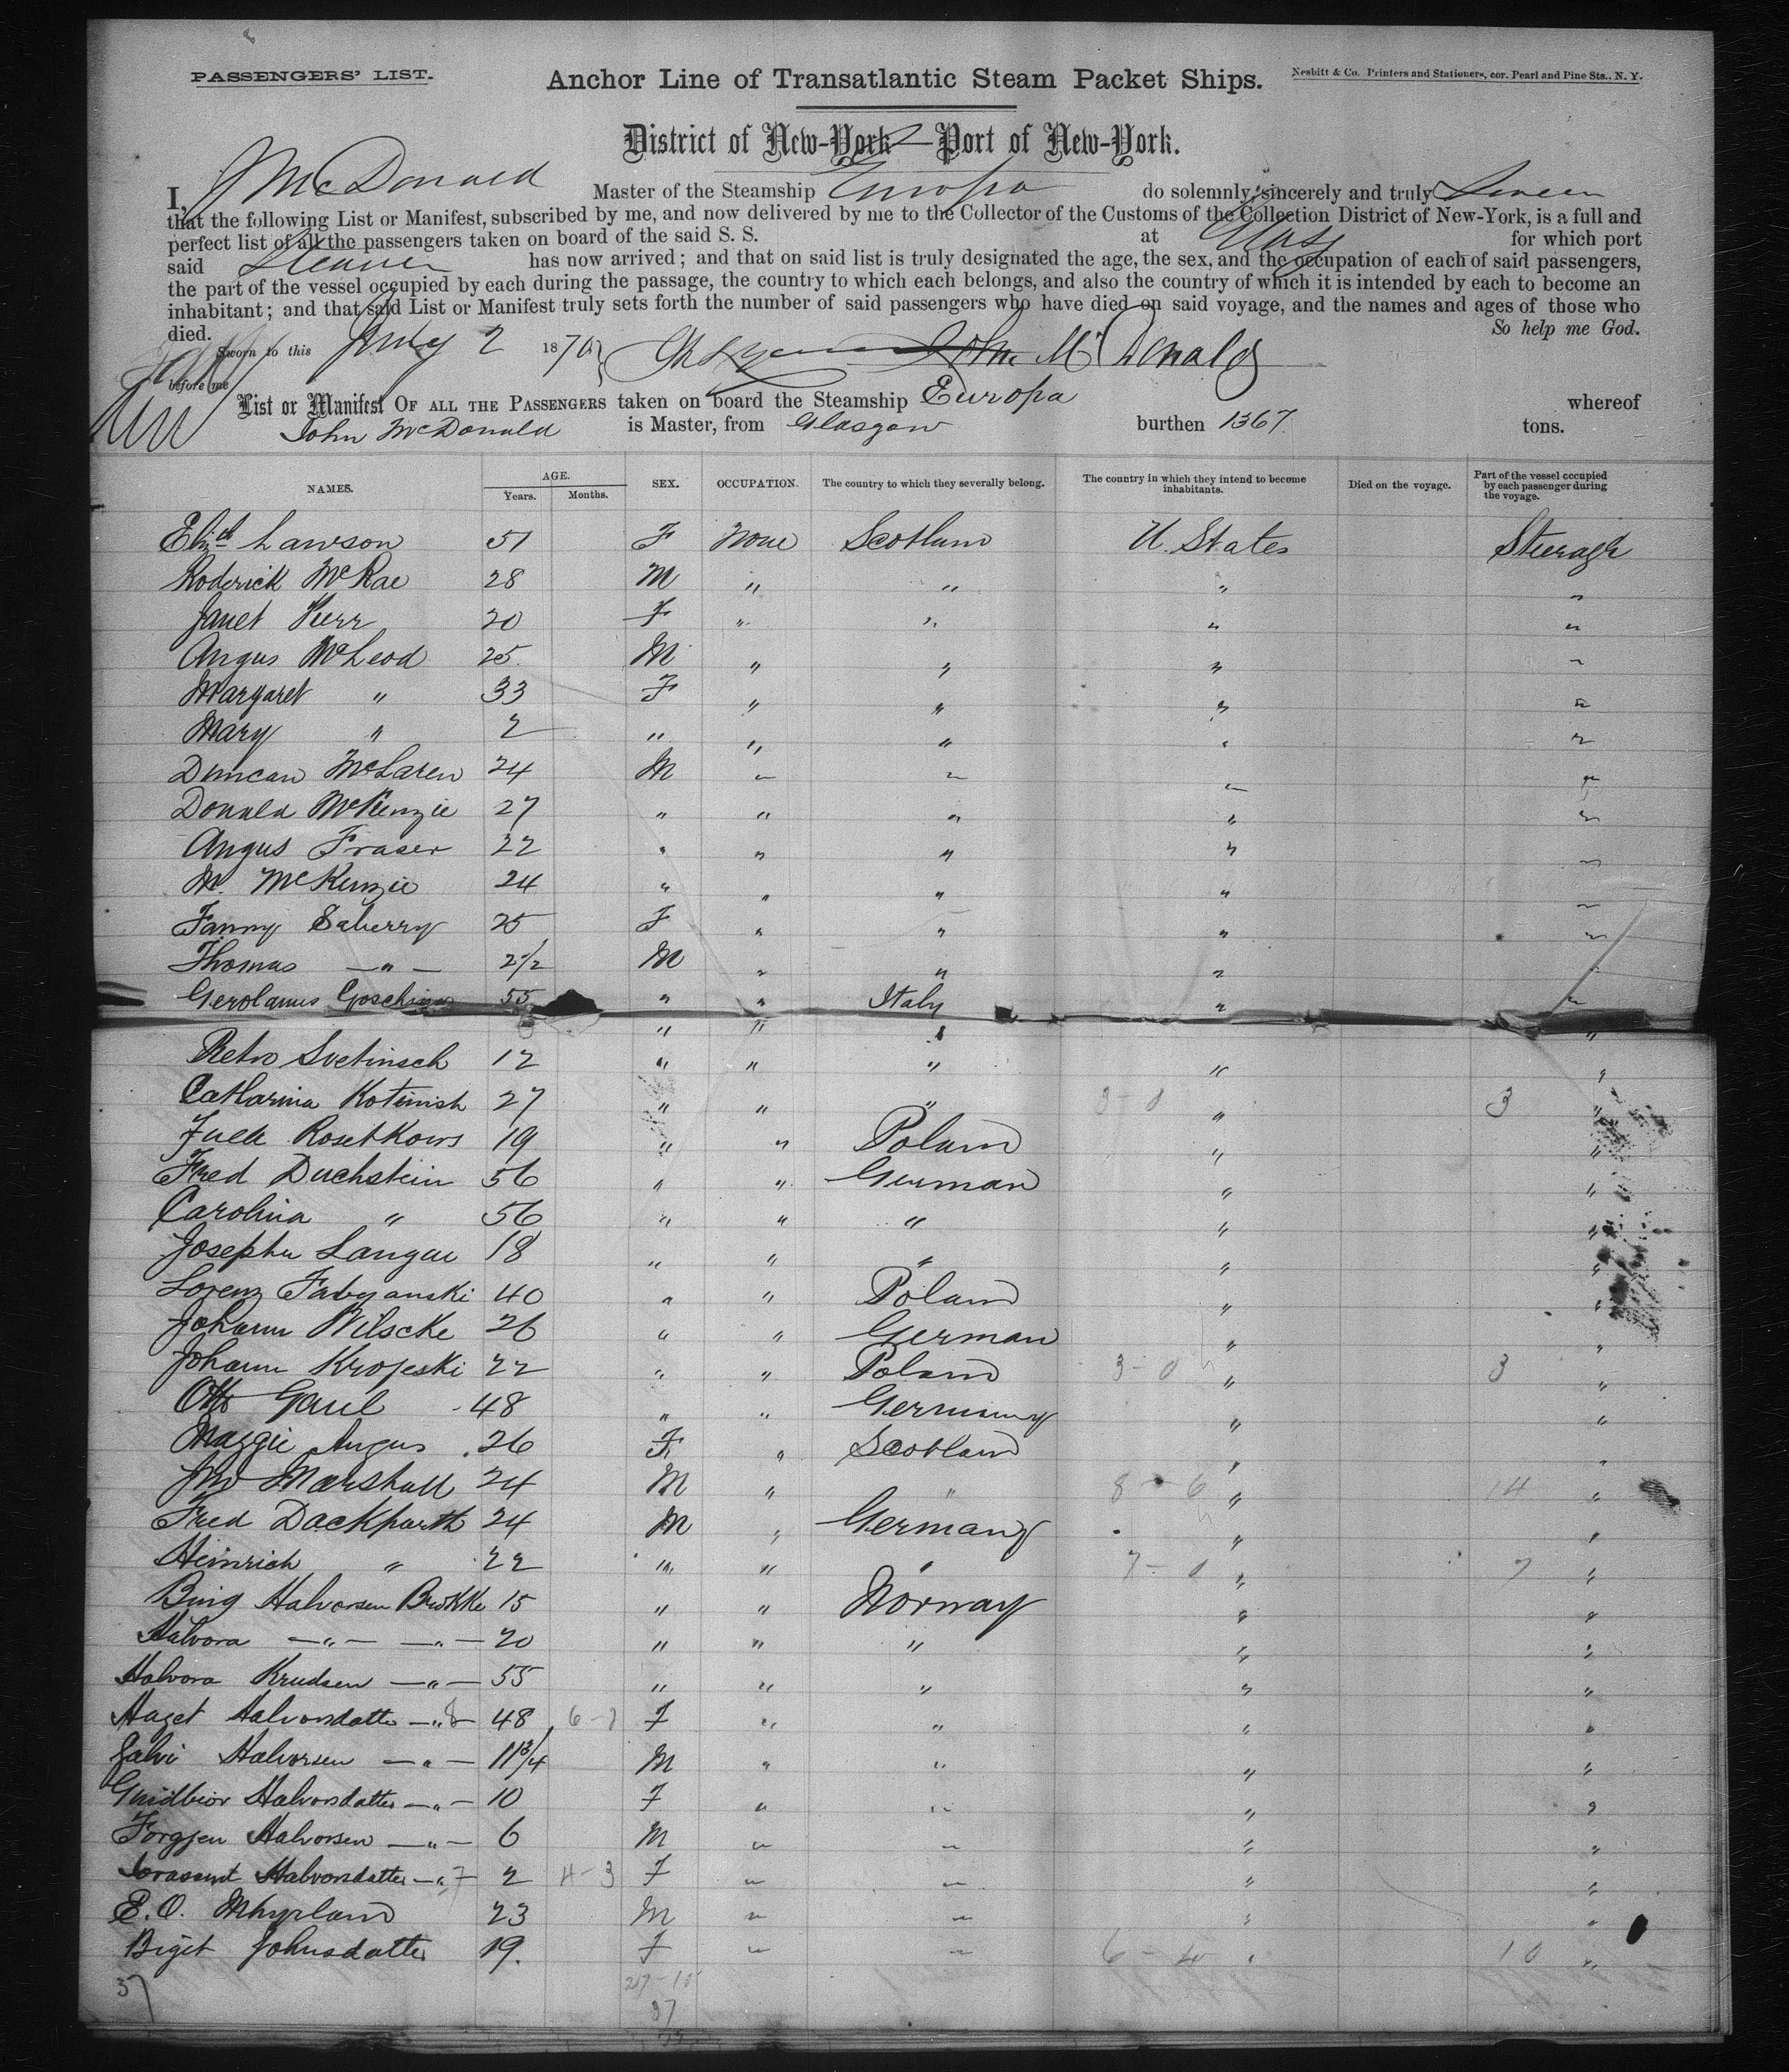 PASSENGERS' LIST.
Anchor Line of Transatlantic Steam Packet Ships.
Nesbitt & Co. Printers and Stationers, cor. Pearl and Pine Sts., N. Y.
District of New-York—Port of New-York.
I, J McDonald Master of the Steamship Europa do solemnly, sincerely and truly Swear
that the following List or Manifest, subscribed by me, and now delivered by me to the Collector of the Customs of the Collection District of New-York, is a full and
perfect list of all the passengers taken on board of the said S. S. at Glasg for which port
said Steamer has now arrived; and that on said list is truly designated the age, the sex, and the occupation of each of said passengers,
the part of the vessel occupied by each during the passage, the country to which each belongs, and also the country of which it is intended by each to become an
inhabitant; and that said List or Manifest truly sets forth the number of said passengers who have died on said voyage, and the names and ages of those who
died. So help me God.
Sworn to this July 2 1870 John McDonald
before me
List or Manifest OF ALL THE PASSENGERS taken on board the Steamship Europa whereof
John McDonald is Master, from Glasgow burthen 1367 tons.
NAMES. AGE. Years. Months. SEX. OCCUPATION. The country to which they severally belong. The country in which they intend to become inhabitants. Died on the voyage. Part of the vessel occupied by each passenger during the voyage.
Elizth Lawson 51 F None Scotland U. States Steerage
Roderick McRae 28 M " " " "
Janet Kerr 20 F " " " "
Angus McLeod 25 M " " " "
Margaret " 33 F " " " "
Mary " 2 " " " " "
Duncan McLaren 24 M " " " "
Donald McKenzie 27 " " " " "
Angus Fraser 22 " " " " "
M. McKenzie 24 " " " " "
Fanny Saberry 25 F " " " "
Thomas — " — 2 1/2 M " " " "
Gerolamus 55 " " Italy " "
" " " "
Petro Svetinsch 12 " " " " "
Catharina Kotinish 27 " " " 3-0 " 3 "
Rosetkows 19 " " Poland " "
Fred Duchstein 56 " " German " "
Carolina " 56 " " " " "
Josepha Langae 18 " " " " "
Lorenz Fabyanski 40 " " Poland " "
Johann Wilscke 26 " " German " "
Johann Krojeski 22 " " Poland 3-0 " 3 "
Otto Gaul 48 " " Germany " "
Maggie Angus 26 F " Scotland " "
Jno Marshall 24 M " " 8-6 " 14 "
Fred Dackparth 24 M " Germany " "
Heinrich " 22 " " " 7-0 " 7 "
Bing Halvorsen Brokke 15 " " Norway " "
Halvora — " — — " — 20 " " " " "
Halvora Knudsen — " — 55 " " " " "
Haget Halvorsdatter — " — 8 48 6-7 F " " " "
Salvi Halvorsen — " — 11 3/4 M " " " "
Guidbior Halvorsdatter — " — 10 F " " " "
Torgjen Halvorsen — " — 6 M " " " "
Halvorsdatter — " — 7 2 4-3 F " " " "
E. O. Mhyrland 23 M " " " "
Biget Johnsdatter 19. F " " 6-4 " 10 "
37
27-10
37